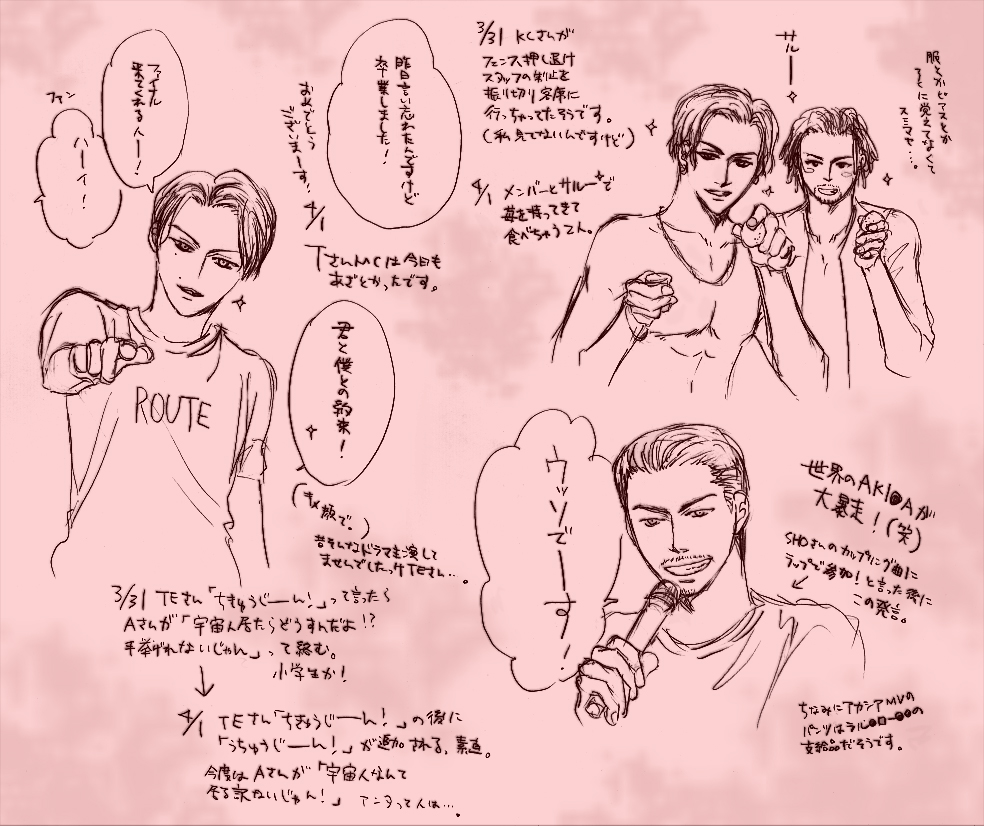 ファイナル
来てくれる人ー！
ファン
ハーイ！
昨日言い忘れたんですけど
卒業しました！
おめでとう
ございまーす！
4/1
TさんMCは今日も
あざとかったです。
君と僕との約束！
(キメ顔で。)
昔そんなドラマ主演して
ませんでしたっけTEさん…。
ROUTE
3/31 TEさん「ちきゅうじーーん！」って言ったら
Aさんが「宇宙人居たらどうすんだよ!?
手挙げれないじゃん」って絡む。
小学生か！
↓
4/1 TEさん「ちきゅうじーーん！」の後に
「うちゅうじーーん！」が追加される。素直。
今度はAさんが「宇宙人なんて
居る訳ないじゃん！」 アンタって人は…。
3/31 KCさんが
フェンス押し退け
スタッフの制止を
振り切り客席に
行っちゃってたそうです。
(私見てないんですけど)
4/1 メンバーとサルーで
苺を持ってきて
食べちゃうてん。
サルーー
服とかピアスとか
ろくに覚えてなくて
スミマセ…。
ウッソでーーす！
世界のAKI●Aが
大暴走！(笑)
SHOさんのカップリング曲に
ラップで参加！と言った後に
この発言。
ちなみにアカシアMVの
パンツはラル●ロー●●の
支給品だそうです。